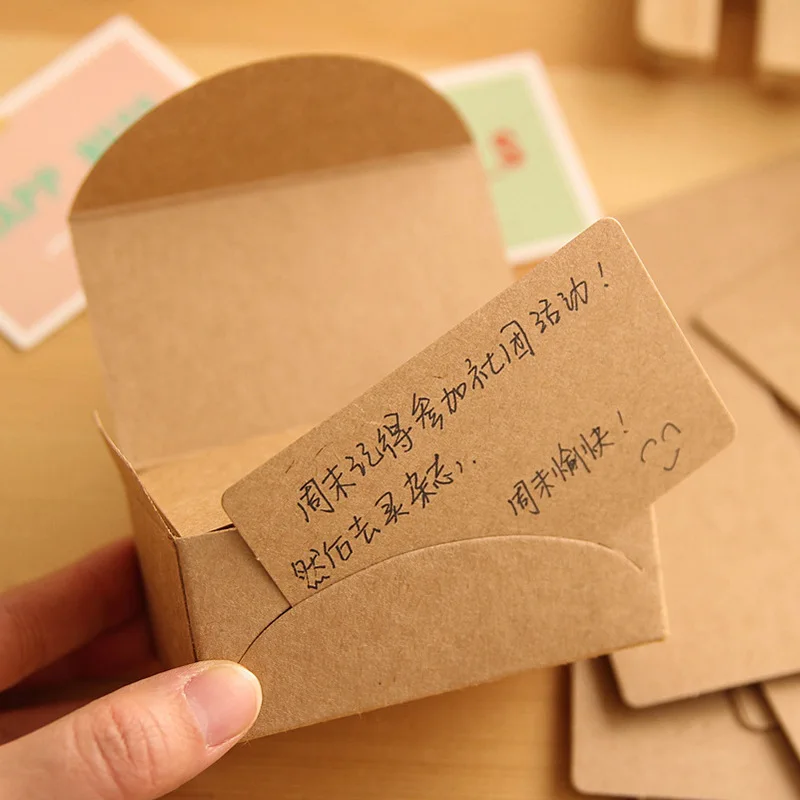 周末记得参加社团活动！
然后去买杂志，.
周末愉快！
APP